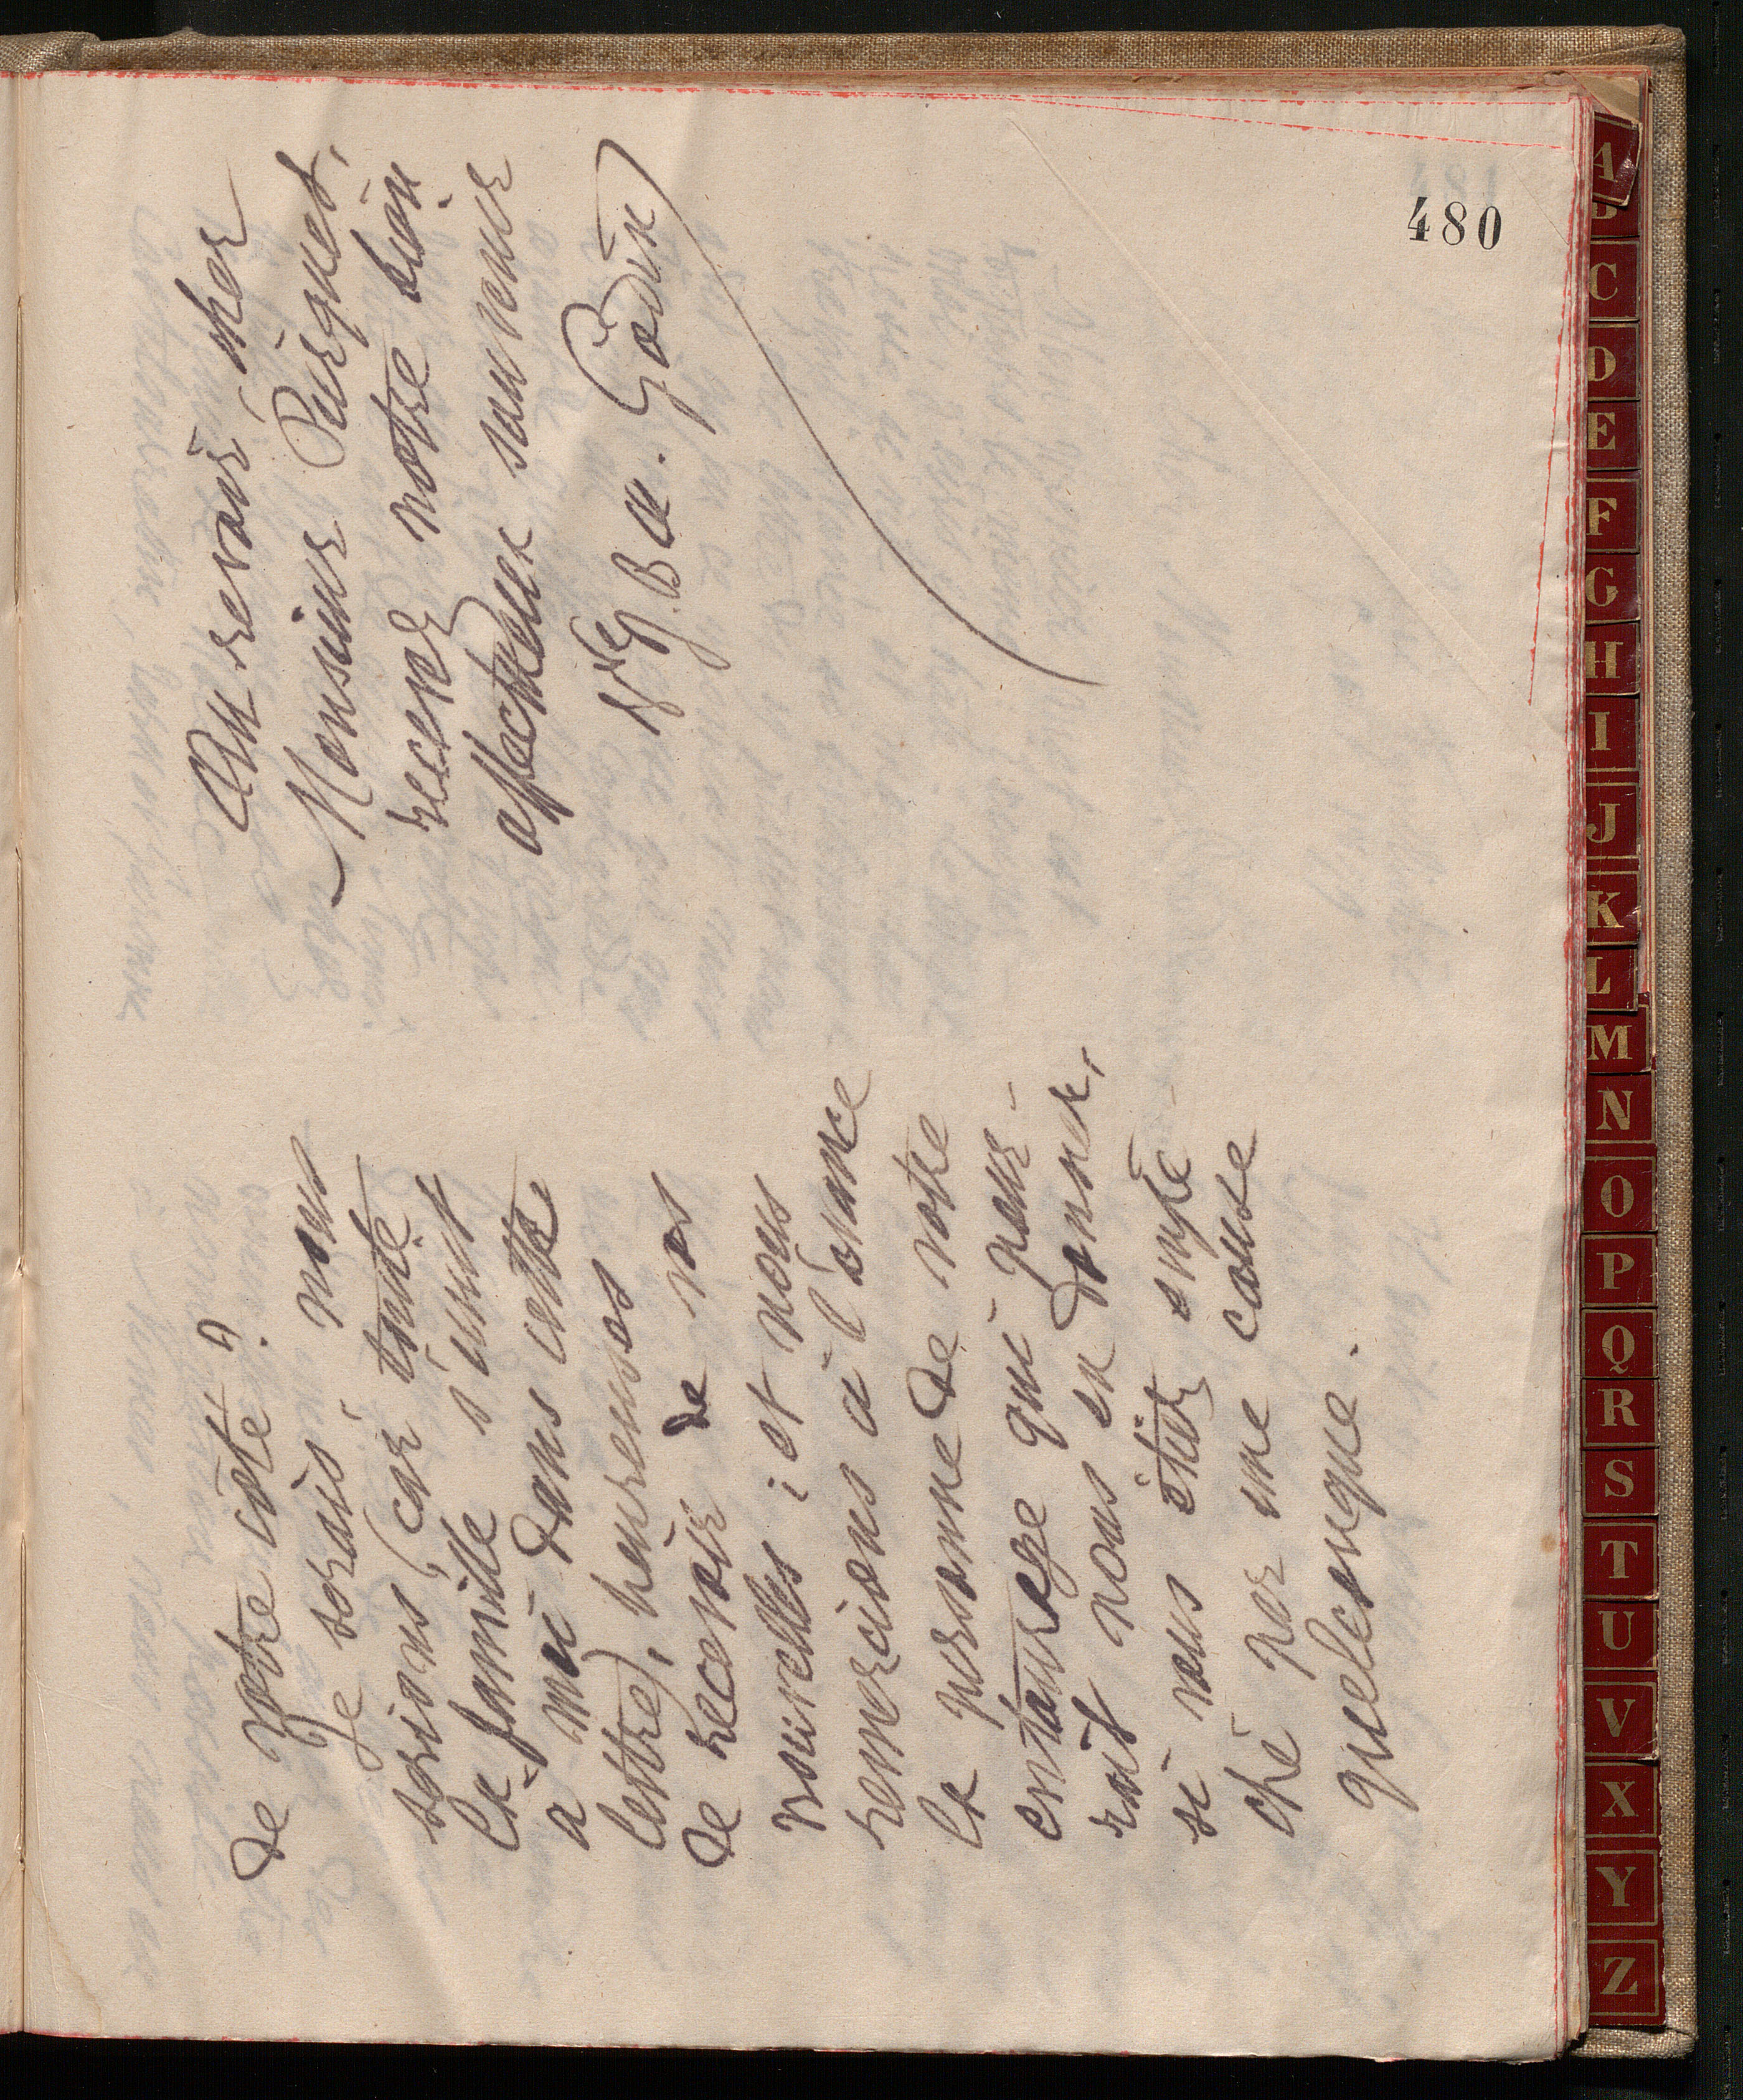 de votre côté ?
Je serais, nous
serions, (car toute
la famille s'unit
à moi dans cette
lettre), heureuses
de recevoir de vos
nouvelles ; et nous
remercions à l'avance
la personne de votre
entourage qui pour-
rait nous en donner,
si vous étiez empê-
ché par une cause
quelconque.
Au revoir, cher
Monsieur Purquet,
recevez notre bien
affectueux souvenir
Vve J. B. A. Godin
480
A
C
D
E
F
G
H
I
J
K
L
M
N
O
P
Q
R
S
T
U
V
X
Y
Z